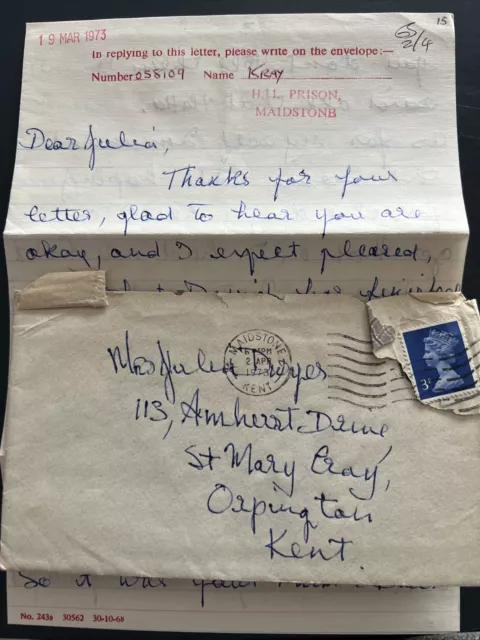 19 MAR 1973
15
65
2/4
In replying to this letter, please write on the envelope:—
Number 058109 Name KRAY
H.M. PRISON,
MAIDSTONE
Dear Julia,
Thanks for your
letter, glad to hear you are
okay, and I expect pleased,
MAIDSTONE
PM
2 APR
1973
KENT
3P
Mrs Julia
113, Amherst Drive,
St Mary Cray,
Orpington
Kent.
So it was your
No. 243a 30562 30-10-68